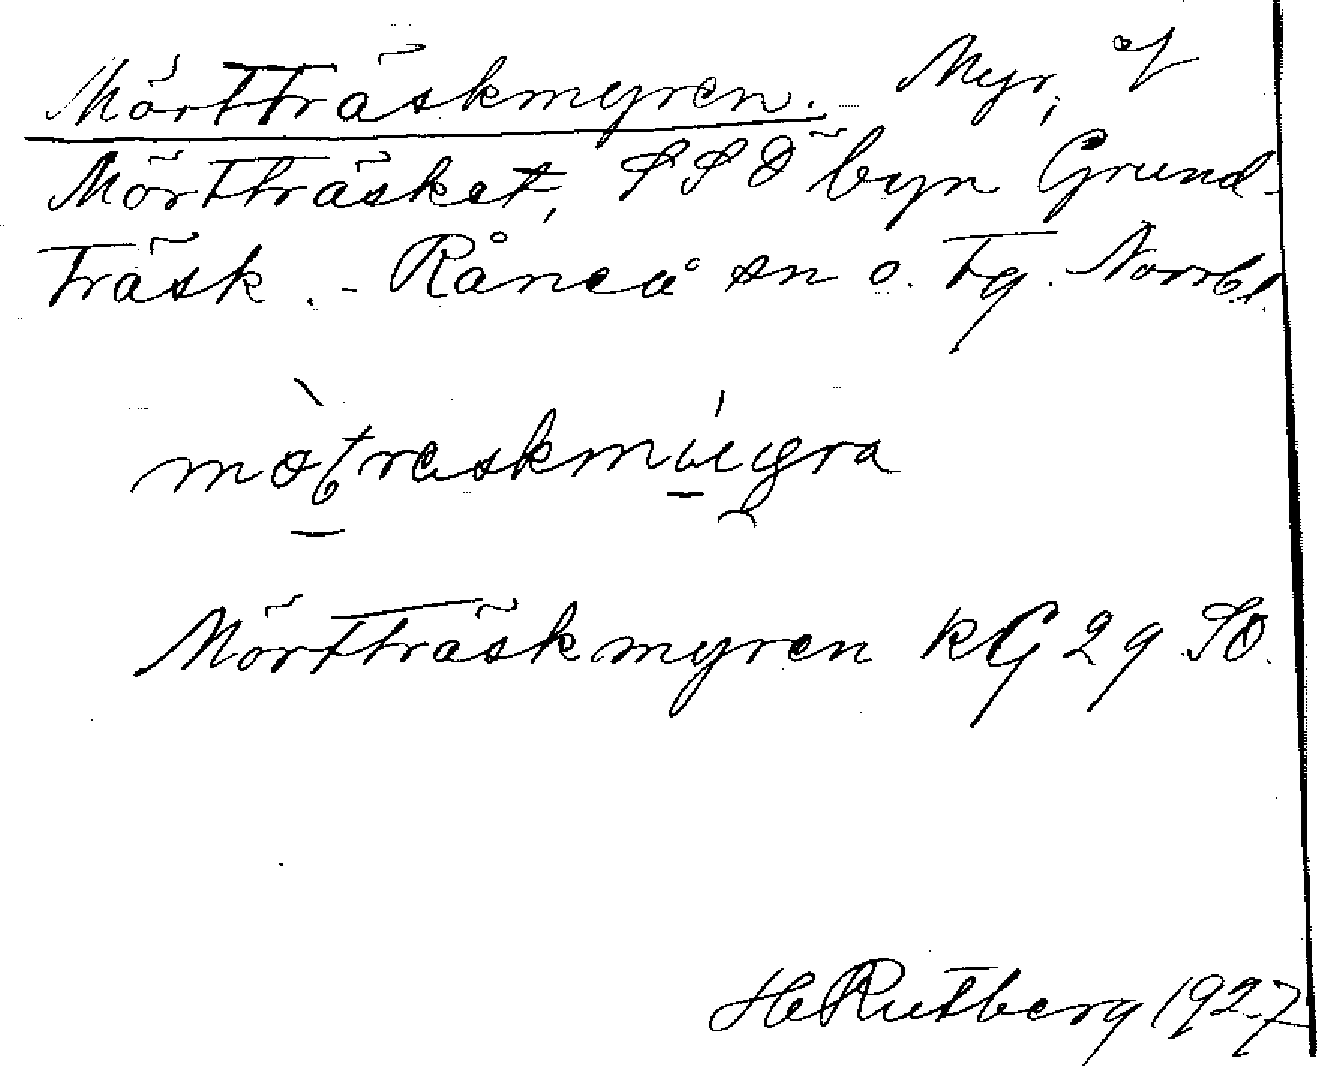 Mörtträskmyren. Myr, öf
Mörtträsket, SSÖ byn Grund-
träsk. - Råneå sn o. tg. Norrb.
Mörtträskmyren KG 29 SO.
HRutberg 1927